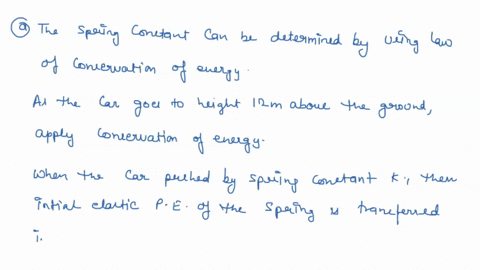 ⓐ The Spring Constant Can be determined by using law
of Conservation of energy.
As the Car goes to height 12m above the ground,
apply Conservation of energy.
When the Car pushed by Spring Constant K., then
intial elastic P.E. of the Spring is transferred
i.